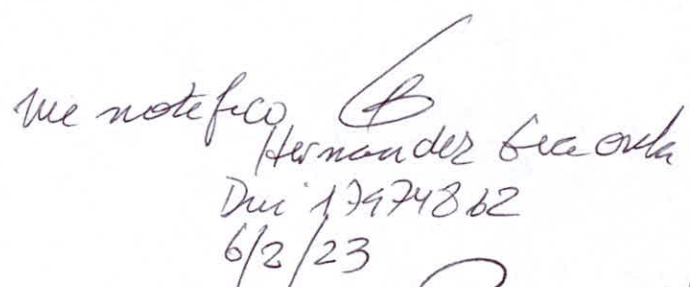 me notifico
Hernandez
Dni 17974862
6/2/23